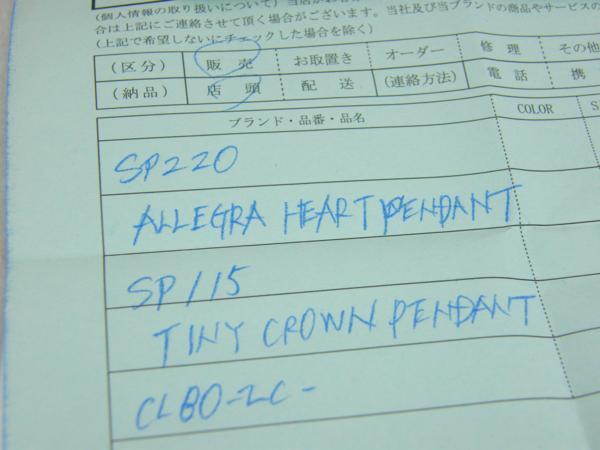 (個人情報の取り扱いについて) 当店がお客様
合は上記にご連絡させて頂く場合がございます。当社及び当ブランドの商品やサービスの
(上記で希望しないにチェックした場合を除く)
(区分) 販 売 お取置き オーダー 修 理 その他
(納品) 店 頭 配 送 (連絡方法) 電 話 携
ブランド・品番・品名 COLOR S
SP220
ALLEGRA HEART PENDANT
SP115
TINY CROWN PENDANT
CL80-2C-